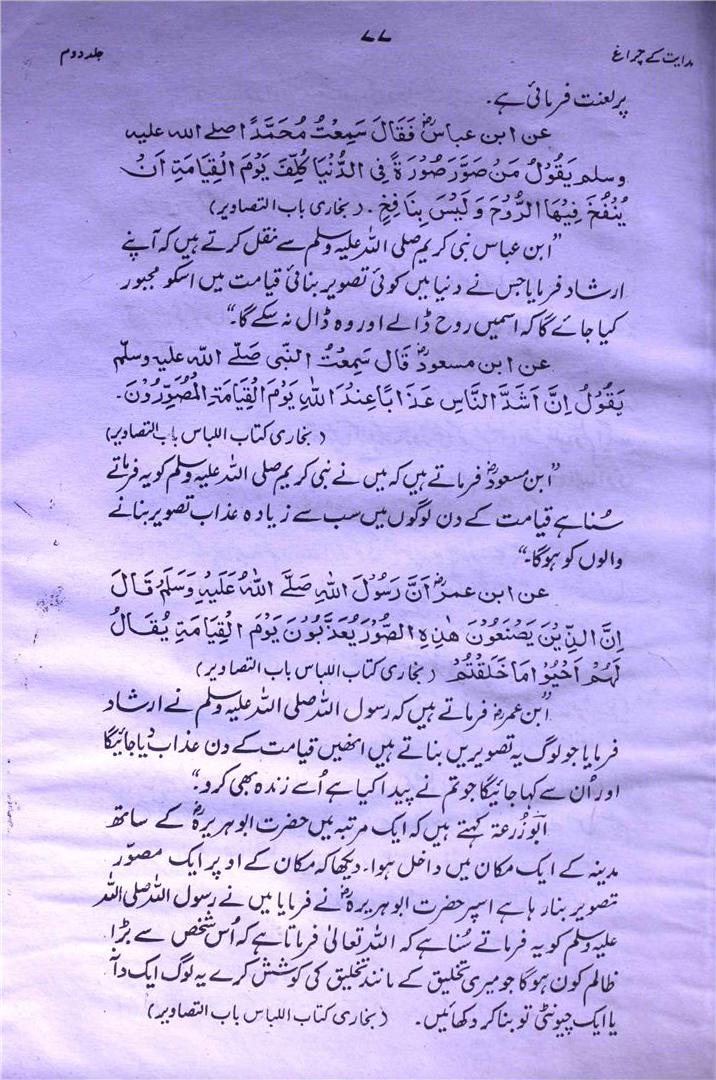 ہدایت کے چراغ ۷۷ جلد دوم
پر لعنت فرمائی ہے۔
عن ابن عباسؓ فَقَالَ سَمِعْتُ مُحَمَّدًا صلے اللہ علیہ
وسلم یَقُوْلُ مَنْ صَوَّرَ صُوْرَۃً فِی الدُّنْیَا کُلِّفَ یَوْمَ الْقِیَامَۃِ اَنْ
یُّنْفُخَ فِیْهَا الرُّوْحَ وَلَیْسَ بِنَافِخٍ۔ (بخاری باب التصاویر)
”ابن عباس نبی کریم صلی اللہ علیہ وسلم سے نقل کرتے ہیں کہ آپنے
ارشاد فرمایا جس نے دنیا میں کوئی تصویر بنائی قیامت میں اسکو مجبور
کیا جائے گا کہ اسمیں روح ڈالے اور وہ ڈال نہ سکے گا۔“
عن ابن مسعودؓ قَال سَمِعْتُ النَّبِی صَلَّے اللہ علیہ وسلّم
یَقُوْلُ اِنَّ اَشَدَّ النَّاسِ عَذَابًا عِنْدَ اللہِ یَوْمَ الْقِیَامَۃِ الْمُصَوِّرُوْنَ۔
(بخاری کتاب اللباس باب التصاویر)
”ابن مسعودؓ فرماتے ہیں کہ میں نے نبی کریم صلی اللہ علیہ وسلم کو یہ فرماتے
سُنا ہے قیامت کے دن لوگوں میں سب سے زیادہ عذاب تصویر بنانے
والوں کو ہوگا۔“
عن ابن عمرؓ اَنَّ رَسُوْلَ اللہِ صَلَّے اللہُ عَلَیْہِ وَسَلَّمَ قَالَ
اِنَّ الَّذِیْنَ یَصْنَعُوْنَ ھٰذِہِ الصُّوَرَ یُعَذَّبُوْنَ یَوْمَ الْقِیَامَۃِ یُقَالُ
لَہُمْ اَحْیُوْا مَا خَلَقْتُمْ (بخاری کتاب اللباس باب التصاویر)
”ابن عمرؓ فرماتے ہیں کہ رسول اللہ صلی اللہ علیہ وسلم نے ارشاد
فرمایا جو لوگ یہ تصویریں بناتے ہیں انھیں قیامت کے دن عذاب دیا جائیگا
اور اُن سے کہا جائیگا جو تم نے پیدا کیا ہے اُسے زندہ بھی کرو۔“
ابو زُرعۃ کہتے ہیں کہ ایک مرتبہ میں حضرت ابوہریرہؓ کے ساتھ
مدینہ کے ایک مکان میں داخل ہوا۔ دیکھا کہ مکان کے اوپر ایک مصوّر
تصویر بنا رہا ہے اسپر حضرت ابوہریرہؓ نے فرمایا میں نے رسول اللہ صلی اللہ
علیہ وسلم کو یہ فرماتے سُنا ہے کہ اللہ تعالیٰ فرماتا ہے کہ اُس شخص سے بڑا
ظالم کون ہوگا جو میری تخلیق کے مانند تخلیق کی کوشش کرے یہ لوگ ایک دانہ
یا ایک چیونٹی تو بنا کر دکھائیں۔ (بخاری کتاب اللباس باب التصاویر)